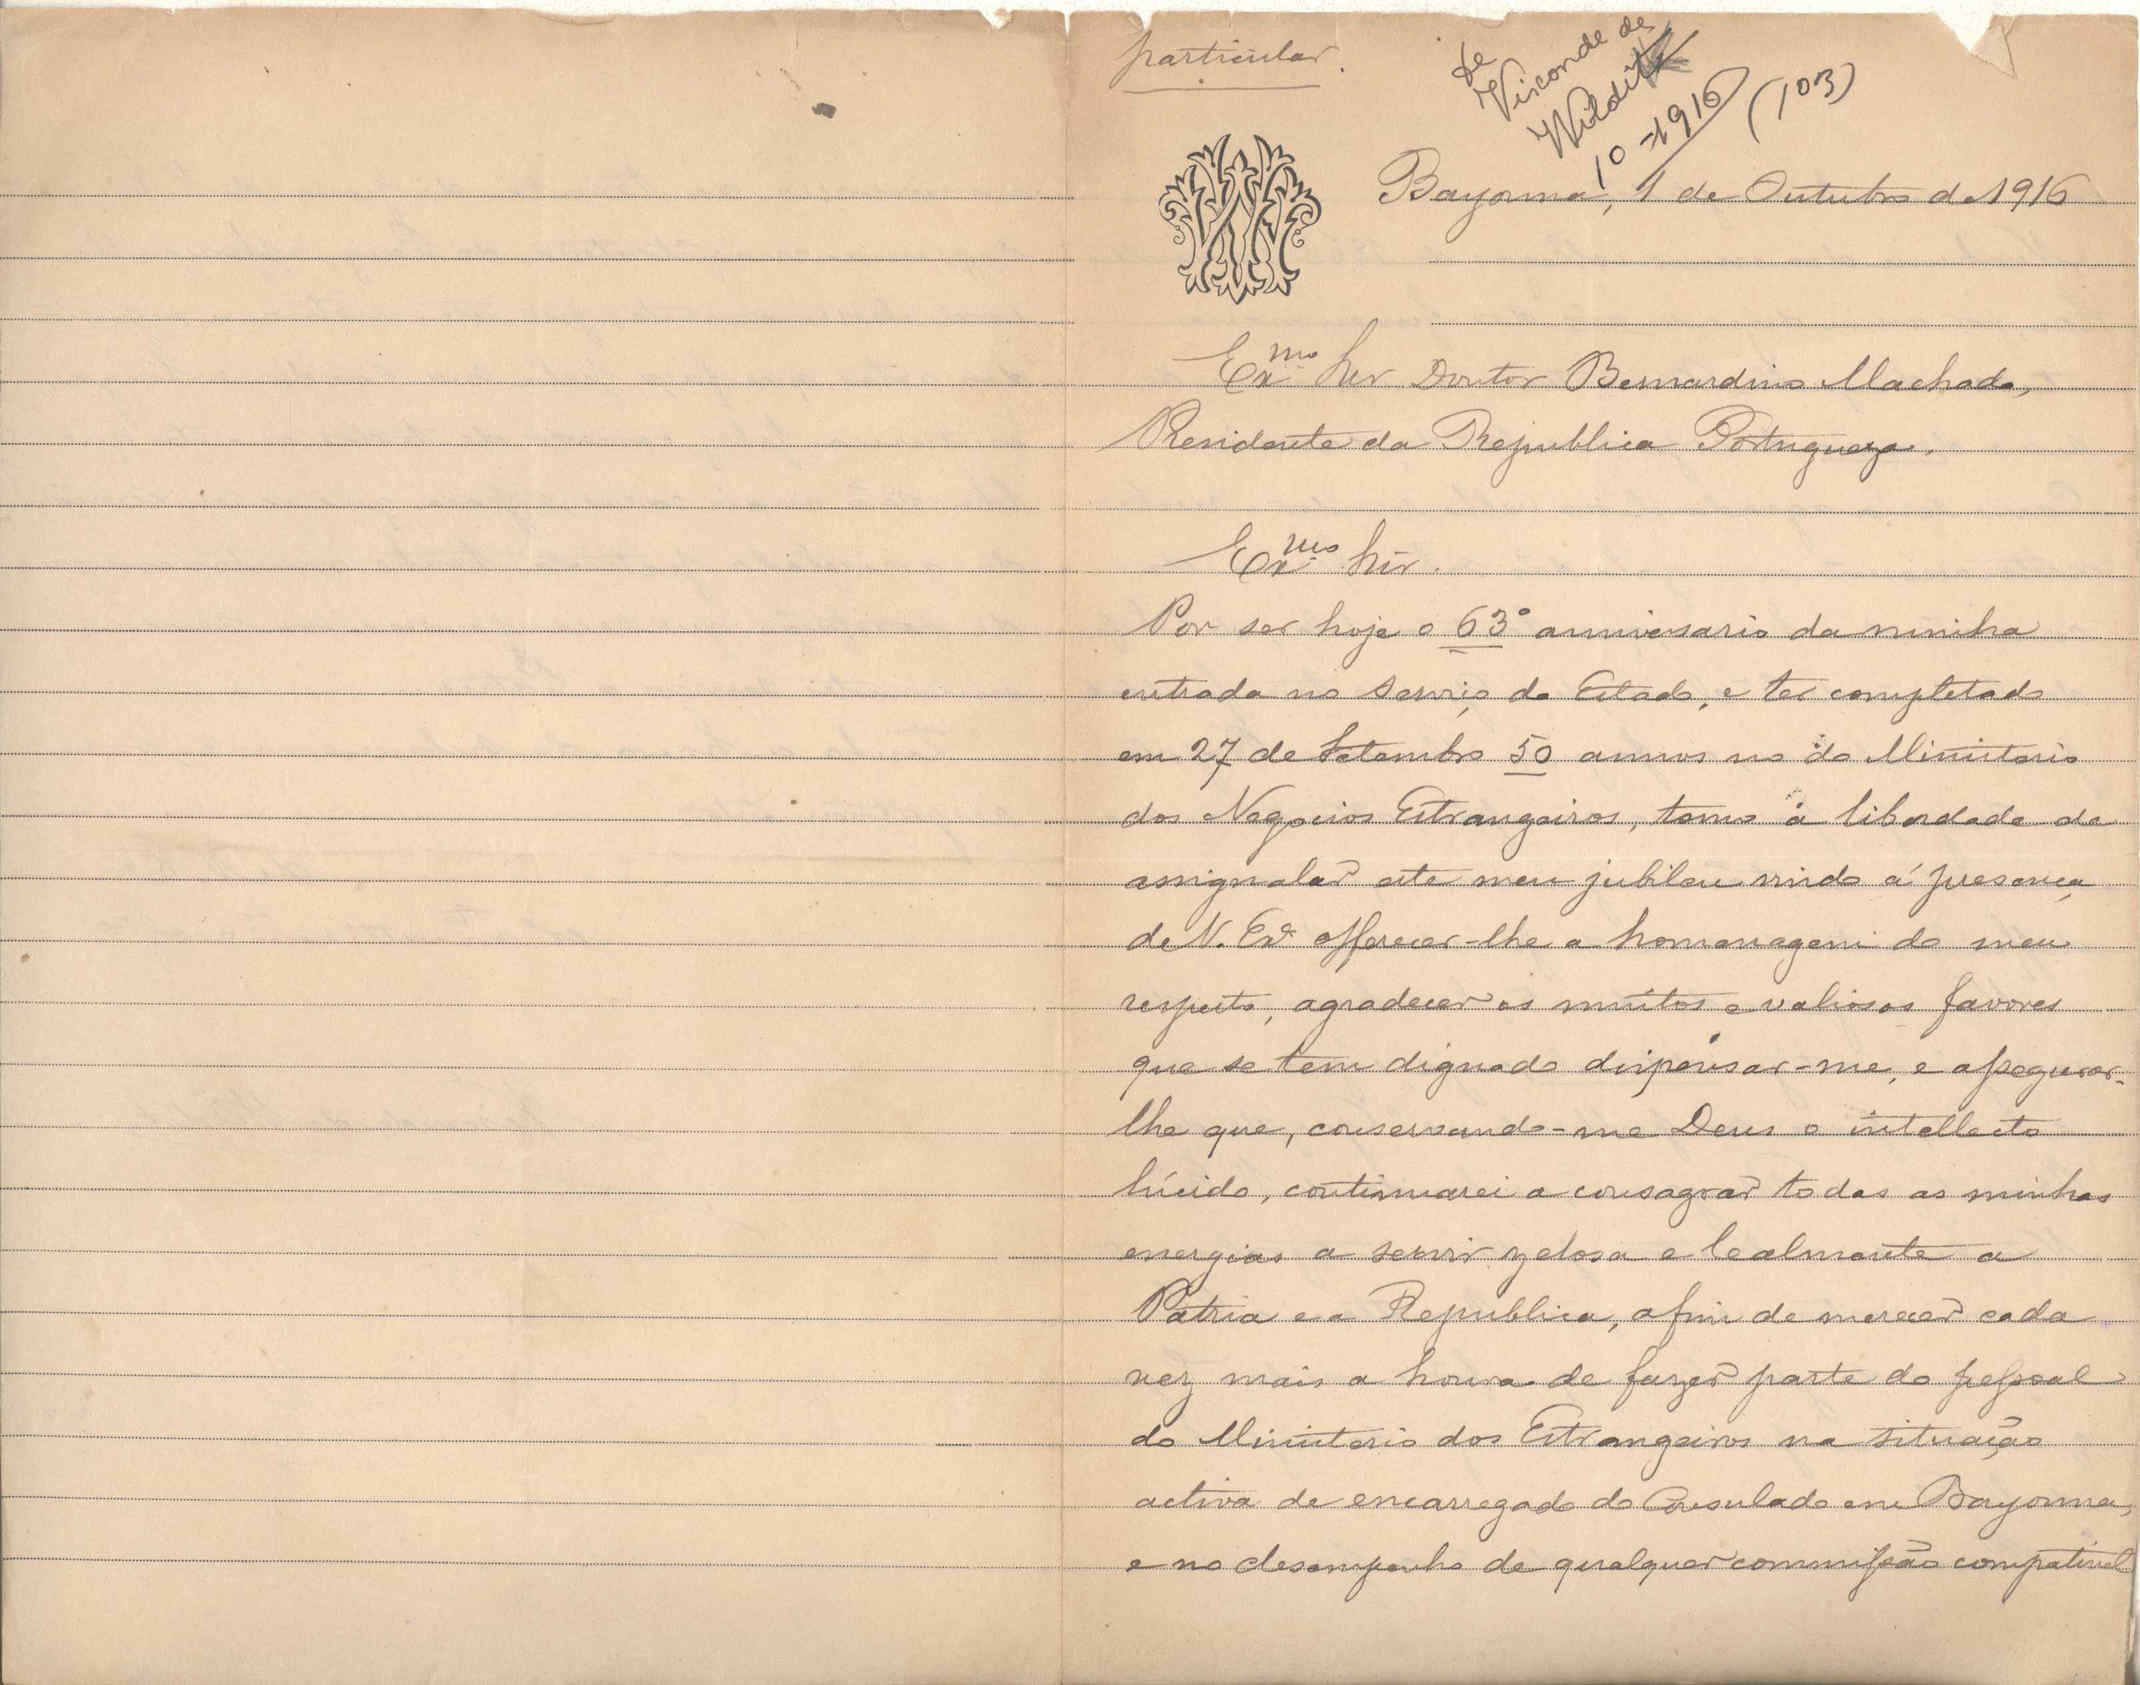 particular.
de
Visconde de
Wildik
10-1916
(103)
Bayonna, 1 de Outubro de 1916
Exmo Snr Doutor Bernardino Machado,
Presidente da Republica Portugueza.
Exmo Snr.
Por ser hoje o 63º anniversario da minha
entrada no serviço do Estado, e ter completado
em 27 de Setembro 50 annos no do Ministerio
dos Negocios Estrangeiros, tomo a liberdade de
assignalar este meu jubileu vindo á presença
de V. Exª offerecer-lhe a homenagem do meu
respeito, agradecer os muitos e valiosos favores
que se tem dignado dispensar-me, e assegurar-
lhe que, conservando-me Deus o intellecto
lúcido, continuarei a consagrar todas as minhas
energias a servir zelosa e lealmente a
Patria e a Republica, afim de merecer cada
vez mais a honra de fazer parte do pessoal
do Ministerio dos Estrangeiros na situação
activa de encarregado do Consulado em Bayonna,
e no desempenho de qualquer commissão compativel